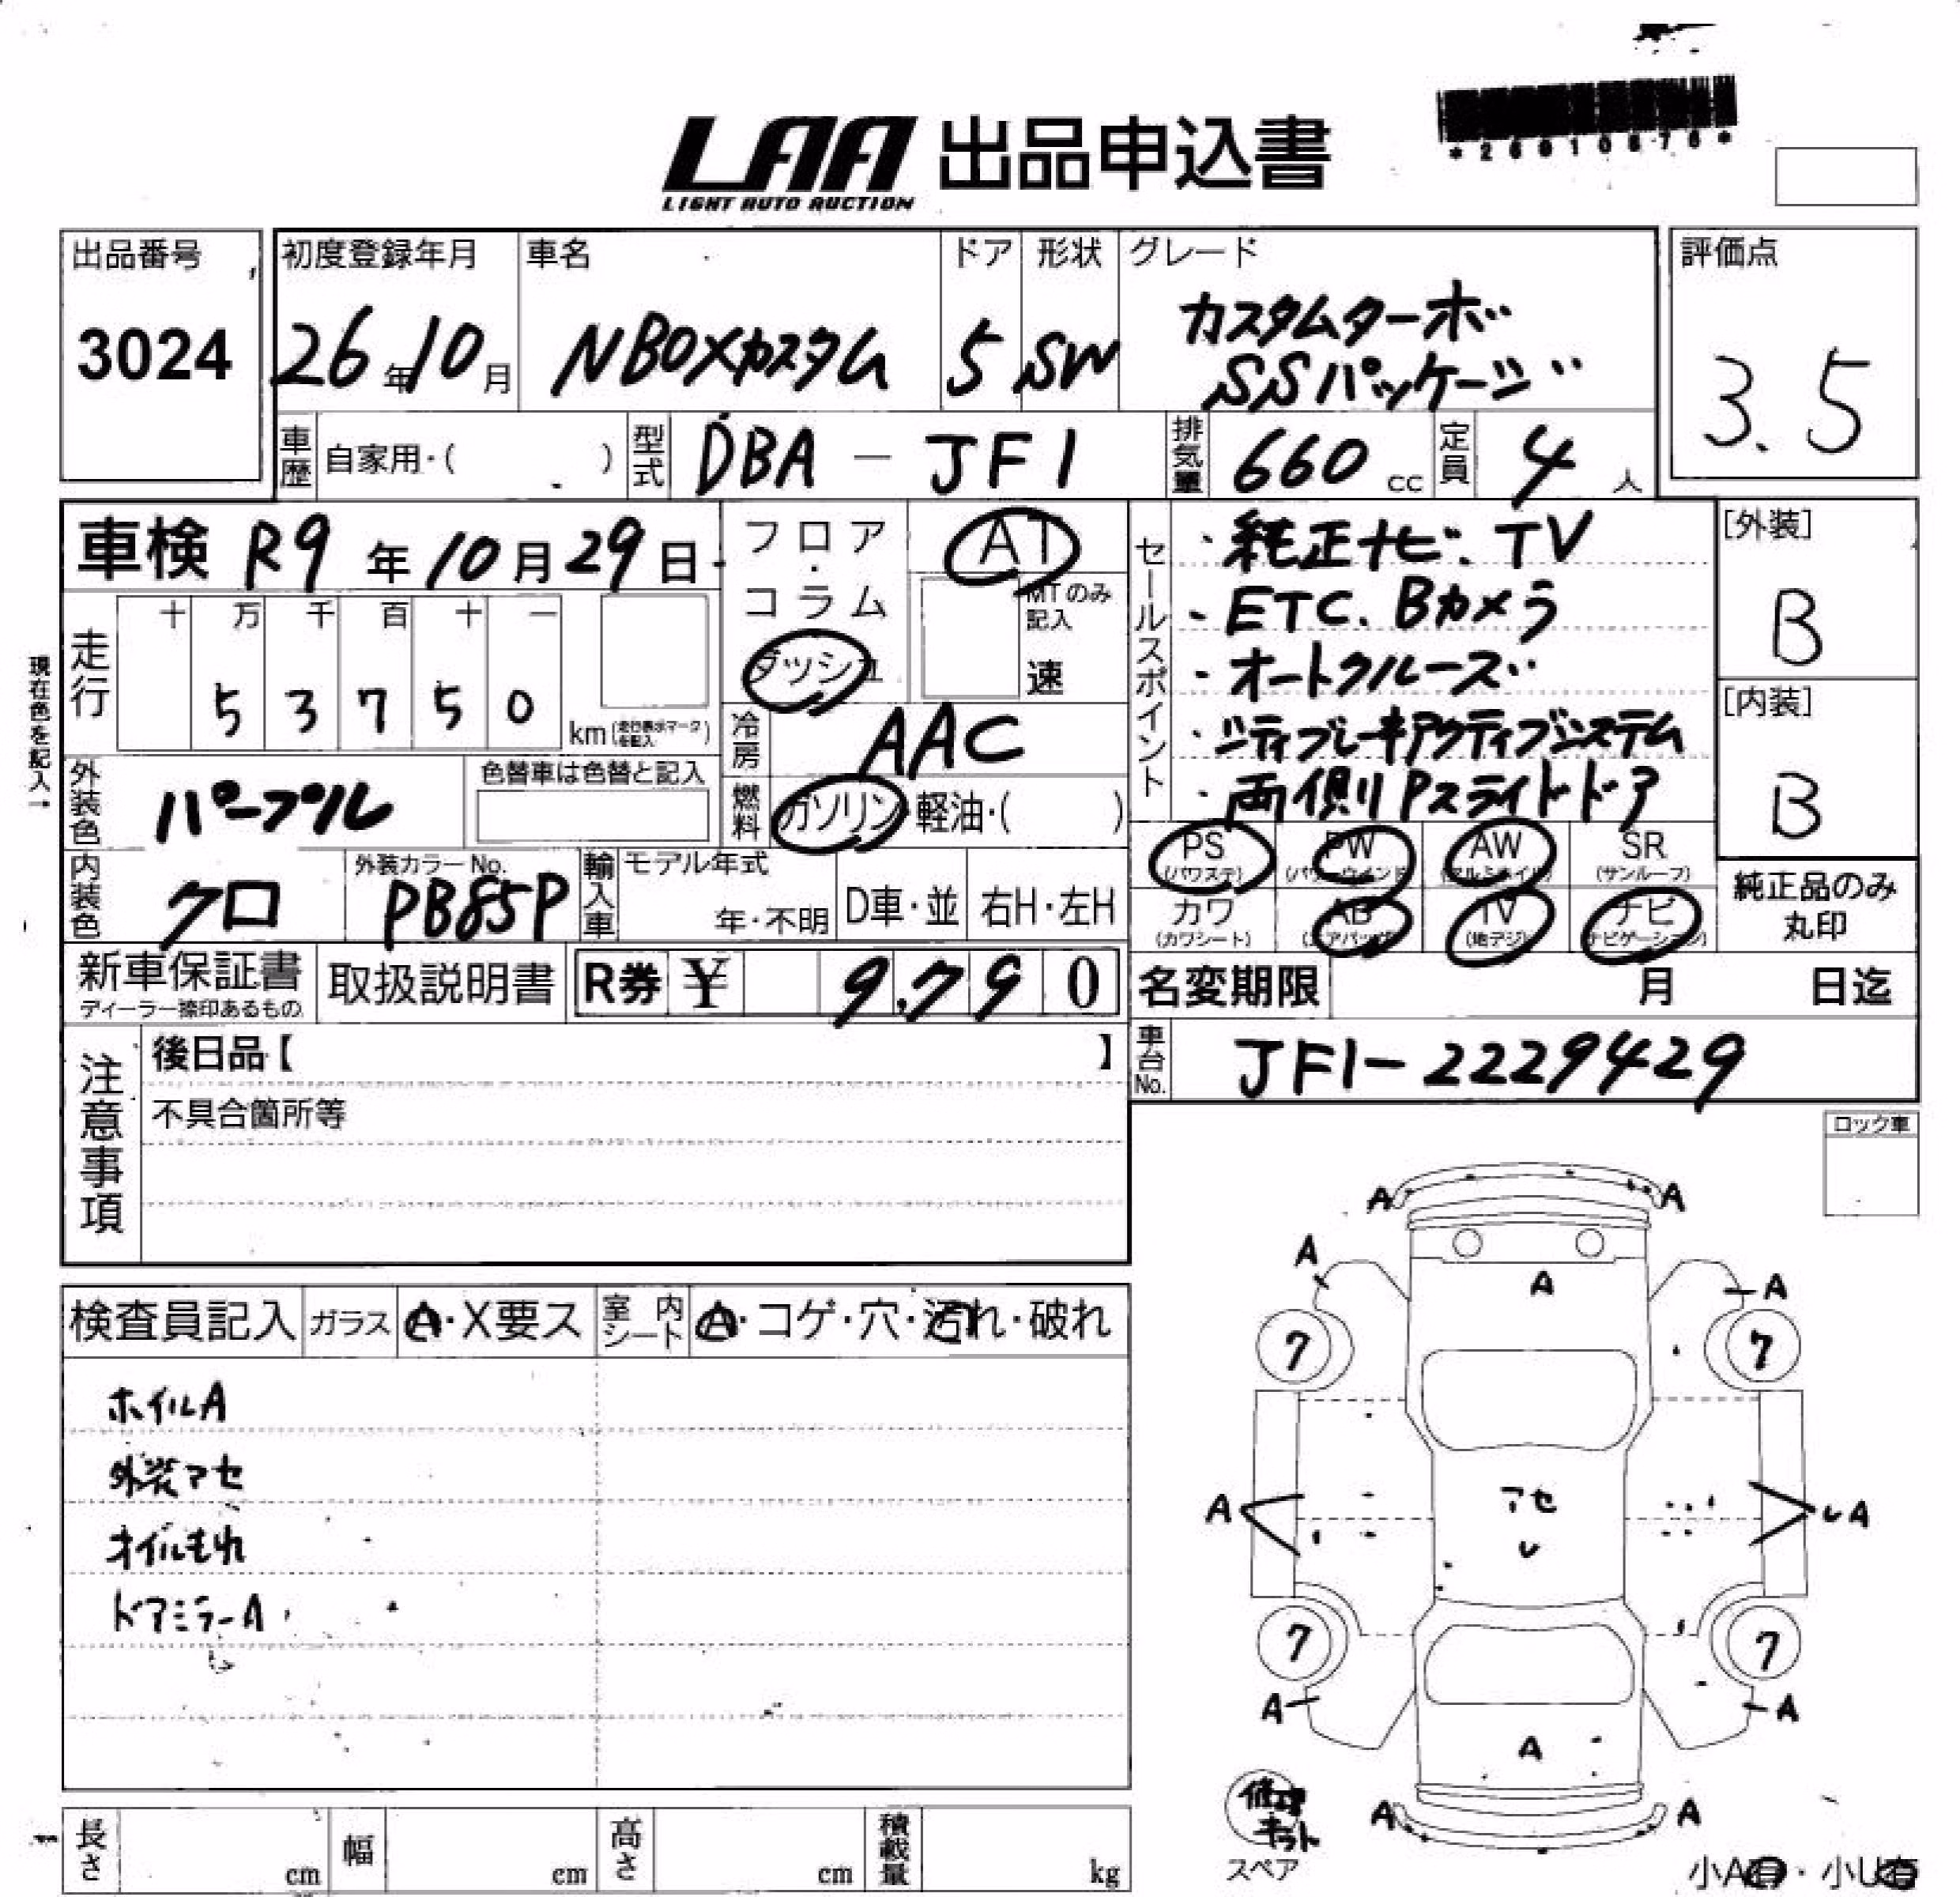 LAA 出品申込書
LIGHT AUTO AUCTION
*26010876*
出品番号
3024
初度登録年月
26年10月
車名
NBOXカスタム
ドア
5
形状
SW
グレード
カスタムターボ
SSパッケージ
評価点
3.5
車歴 自家用・( )
型式 DBA - JF1
排気量 660 cc
定員 4 人
車検 R9年10月29日
フロア・コラム
ダッシュ
AT
MTのみ記入
速
セールスポイント
・純正ナビ. TV
・ETC. Bカメラ
・オートクルーズ
・シティブレーキアクティブシステム
・両側Pスライドドア
[外装]
B
[内装]
B
現在色を記入→
走行
十 万 千 百 十 一
5 3 7 5 0
km (走行表示マークを記入)
冷房 AAC
外装色 パープル
色替車は色替と記入
燃料 ガソリン・軽油・( )
内装色 クロ
外装カラーNo.
PB85P
輸入車
モデル年式
年・不明
D車・並
右H・左H
PS (パワステ)
PW (パワーウインド)
AW (アルミホイル)
SR (サンルーフ)
カワ (カワシート)
AB (エアバッグ)
TV (地デジ)
ナビ (ナビゲーション)
純正品のみ
丸印
新車保証書
ディーラー捺印あるもの
取扱説明書
R券 ¥ 9,790
名変期限 月 日迄
車台No. JF1-2229429
注意事項
後日品【 】
不具合箇所等
ロック車
検査員記入
ガラス A・X要ス
室内シート A・コゲ・穴・汚れ・破れ
ホイルA
外装アセ
オイルもれ
ドアミラーA
A A
A A A
7 7
A アセ レA
レ
7 7
A A
A
A A
修理キット
スペア
小A有・小U有
長さ cm
幅 cm
高さ cm
積載量 kg